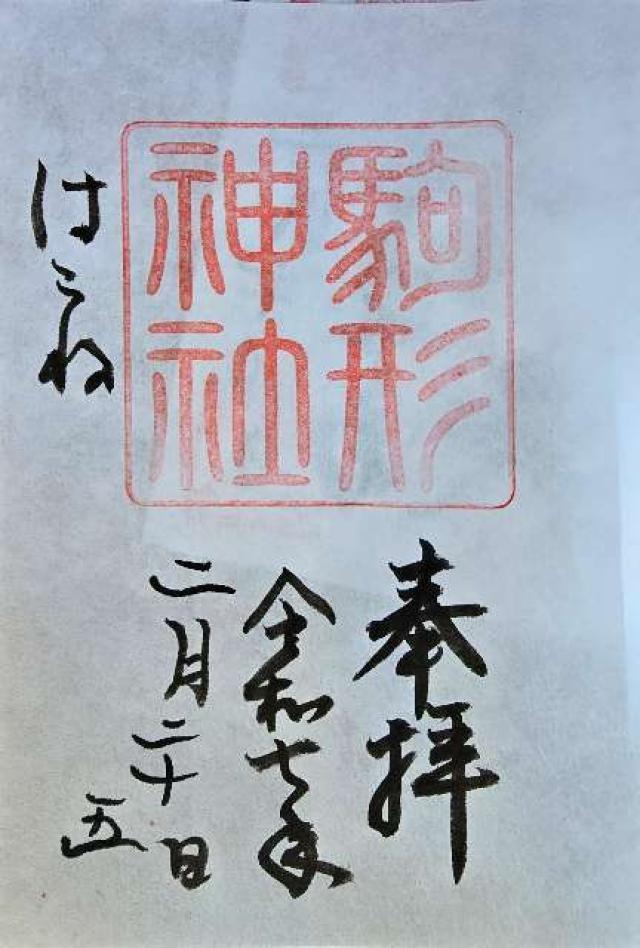 駒形
神社
はこね
奉拝
令和七年
二月二十日
五